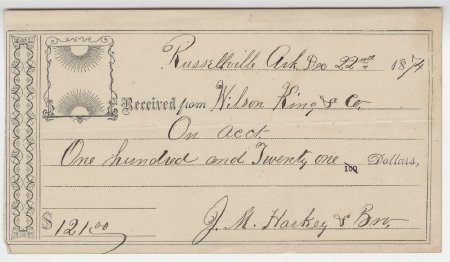 Russellville Ark Dec 22nd 1874
Received from Wilson King & Co.
On acct
One hundred and Twenty one 100 Dollars.
$ 121.00 J. M. Harkey & Bro.